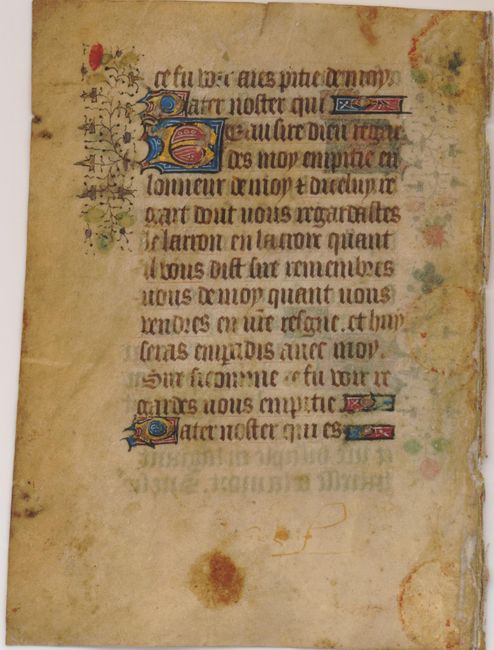 ce fu voir aies pitie de moy
Pater noster qui
Beau sire dieu regar
des moy em pitie en
lonneur de moy & diceluy re
gart dont uous regardastes
le larron en la croix quant
il vous dist sire remembres
uous de moy quant uous
vendres en vre resgne. et huy
seras em padis auec moy.
Sire si comme ce fu voir re
gardes nous em pitie
Pater noster qui es